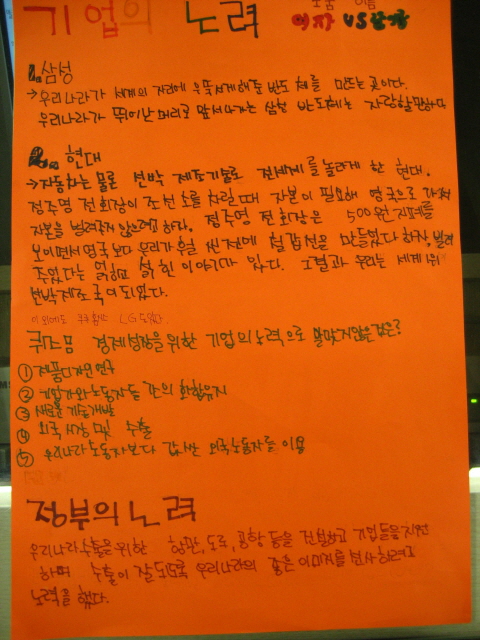 기업의 노력
모둠 이름
여자 VS 남자
1. 삼성
→우리나라가 세계의 자리에 우뚝서게해준 반도체를 만드는 곳이다.
우리나라가 뛰어난머리로 앞서나가는 삼성 반도체는 자랑할만하다
2. 현대
→자동차는 물론 선박 제조기술로 전세계를 놀라게 한 현대.
정주영 전회장이 조선소를 차릴때 자본이 필요해 영국으로 가서
자본을 빌려주지 않으려고 하자. 정주영 전회장은 500원지폐를
보이면서 영국보다 우리가 훨씬전에 철갑선을 만들었다 하자, 빌려
주었다는 얽히고 섥힌 이야기가 있다. 그결과 우리는 세계1위
선박제조국이 되었다.
이외에도 LG도있다.
퀴즈 경제성장을 위한 기업의 노력으로 알맞지않은것은?
① 제품디자인연구
② 기업가와노동자들 간의 화합유지
③ 새로운 기술개발
④ 외국 시장 및 수출
⑤ 우리나라 노동자보다 값싼 외국노동자들 이용
정부의 노력
우리나라 수출을위한 항만,도로,공항 등을 건설하고 기업들을지원
하며 수출이 잘되도록 우리나라의 좋은 이미지를 선사하려고
노력을 했다.